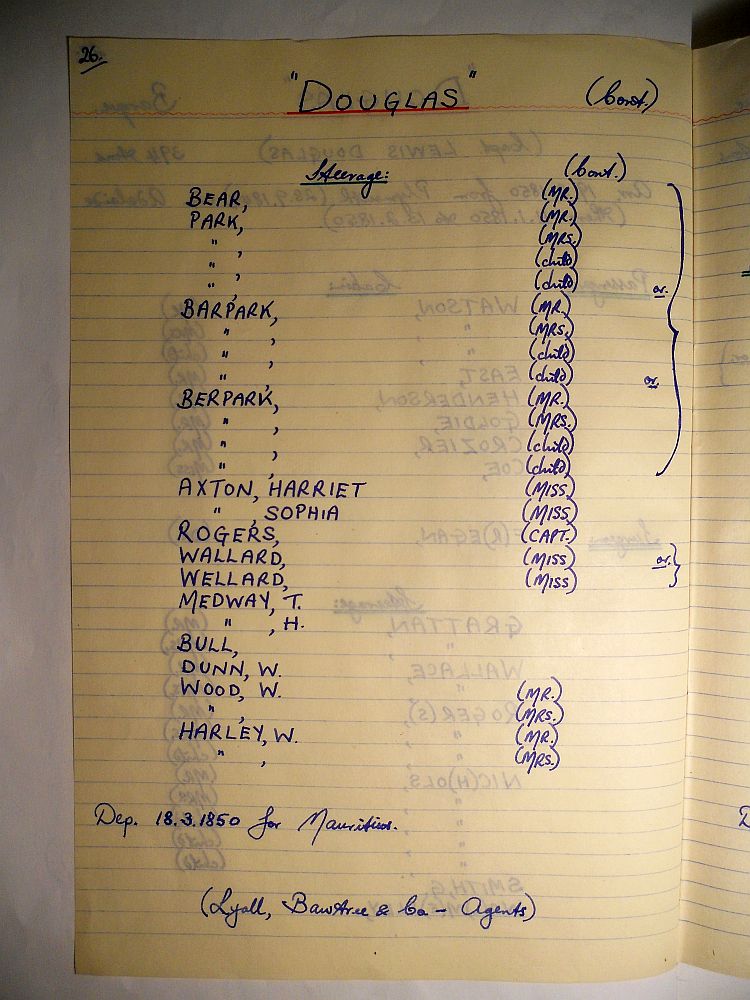 26.
"DOUGLAS" (Cont.)
Steerage: (Cont.)
BEAR, (MR.)
PARK, (MR.)
" , (MRS.)
" , (child)
" , (child) or
BARPARK, (MR.)
" , (MRS.)
" , (child)
" , (child) or
BERPARK, (MR.)
" , (MRS.)
" , (child)
" , (child)
AXTON, HARRIET (MISS)
" , SOPHIA (MISS)
ROGERS, (CAPT.)
WALLARD, (MISS) or
WELLARD, (MISS)
MEDWAY, T.
" , H.
BULL,
DUNN, W.
WOOD, W. (MR.)
" , (MRS.)
HARLEY, W. (MR.)
" , (MRS.)
Dep. 18.3.1850 for Mauritius.
(Lyall, Bawtree & Co - Agents)